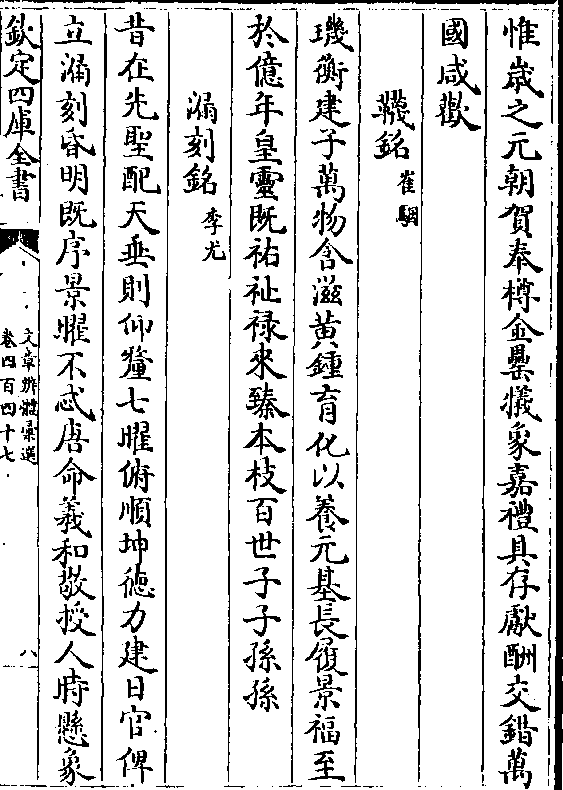 惟嵗之元朝賀奉樽金罍犧象嘉禮具存獻酬交錯萬
國咸歡
韈銘崔駰
璣衡建子萬物含滋黄鍾育化以養元基長履景福至
於億年皇靈既祐祉禄來臻本枝百世子子孫孫
漏刻銘李尤
昔在先聖配天垂則仰釐七曜俯順坤徳力建日官俾
立漏刻昏明既序景曜不忒唐命羲和敬授人時懸象
欽定四庫全書
文章辨體彚選
卷四百四十七
八